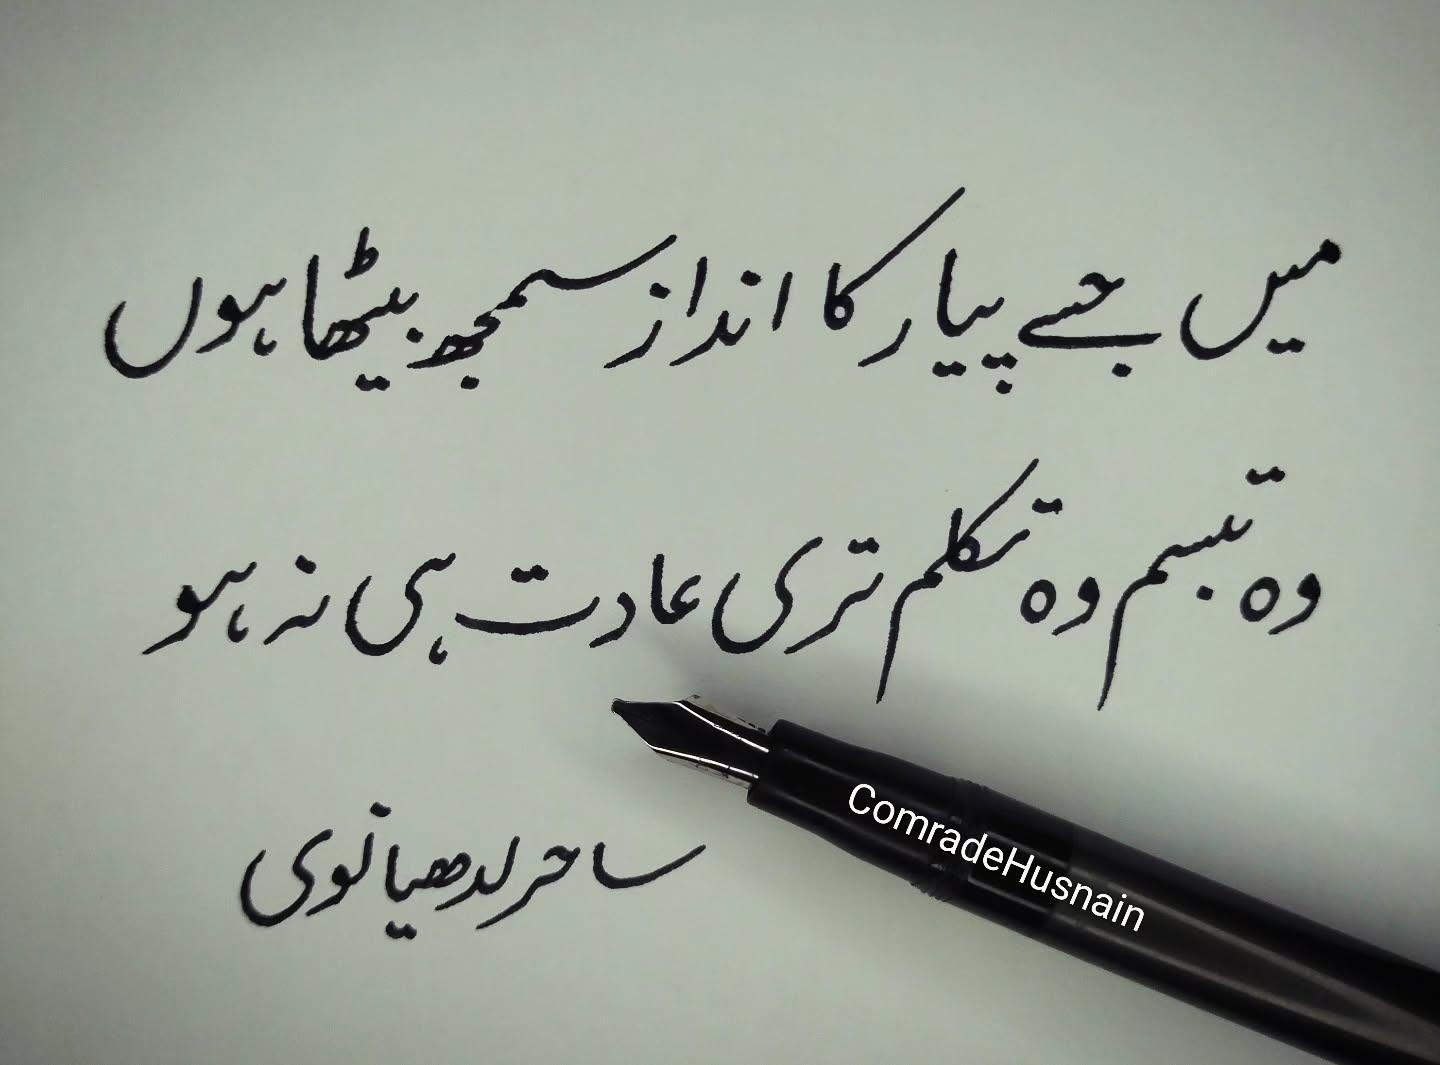 میں جسے پیار کا انداز سمجھ بیٹھا ہوں
وہ تبسم وہ تکلم تری عادت ہی نہ ہو
ساحر لدھیانوی
ComradeHusnain